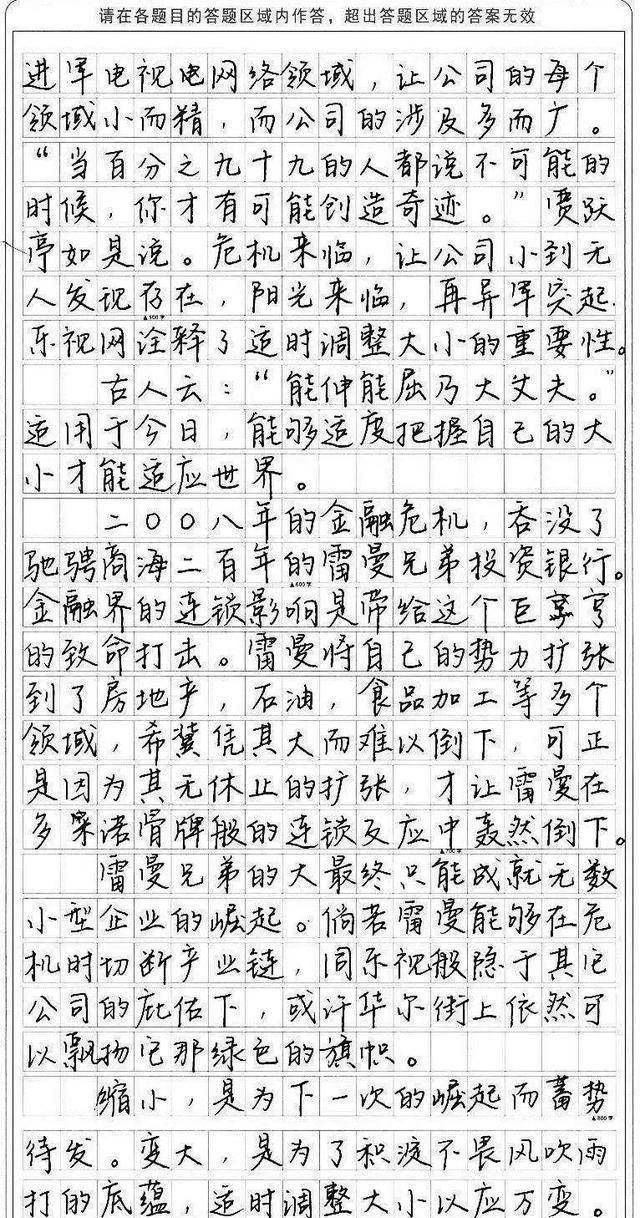 请在各题目的答题区域内作答，超出答题区域的答案无效
进军电视电网络领域，让公司的每个
领域小而精，而公司的涉及多而广。
“当百分之九十九的人都说不可能的
时候，你才有可能创造奇迹。”贾跃
亭如是说。危机来临，让公司小到无
人发现存在，阳光来临，再异军突起.
▲500字
乐视网诠释了适时调整大小的重要性。
古人云：“能伸能屈乃大丈夫。”
适用于今日，能够适度把握自己的大
小才能适应世界。
二〇〇八年的金融危机，吞没了
驰骋商海二百年的雷曼兄弟投资银行。
▲600字
金融界的连锁影响是带给这个巨亨
的致命打击。雷曼将自己的势力扩张
到了房地产，石油，食品加工等多个
领域，希冀凭其大而难以倒下，可正
是因为其无休止的扩张，才让雷曼在
多米诺骨牌般的连锁反应中轰然倒下。
▲700字
雷曼兄弟的大最终只能成就无数
小型企业的崛起。倘若雷曼能够在危
机时切断产业链，同乐视般隐于其它
公司的庇佑下，或许华尔街上依然可
以飘扬它那绿色的旗帜。
缩小，是为下一次的崛起而蓄势
▲800字
待发。变大，是为了积淀不畏风吹雨
打的底蕴，适时调整大小以应万变。